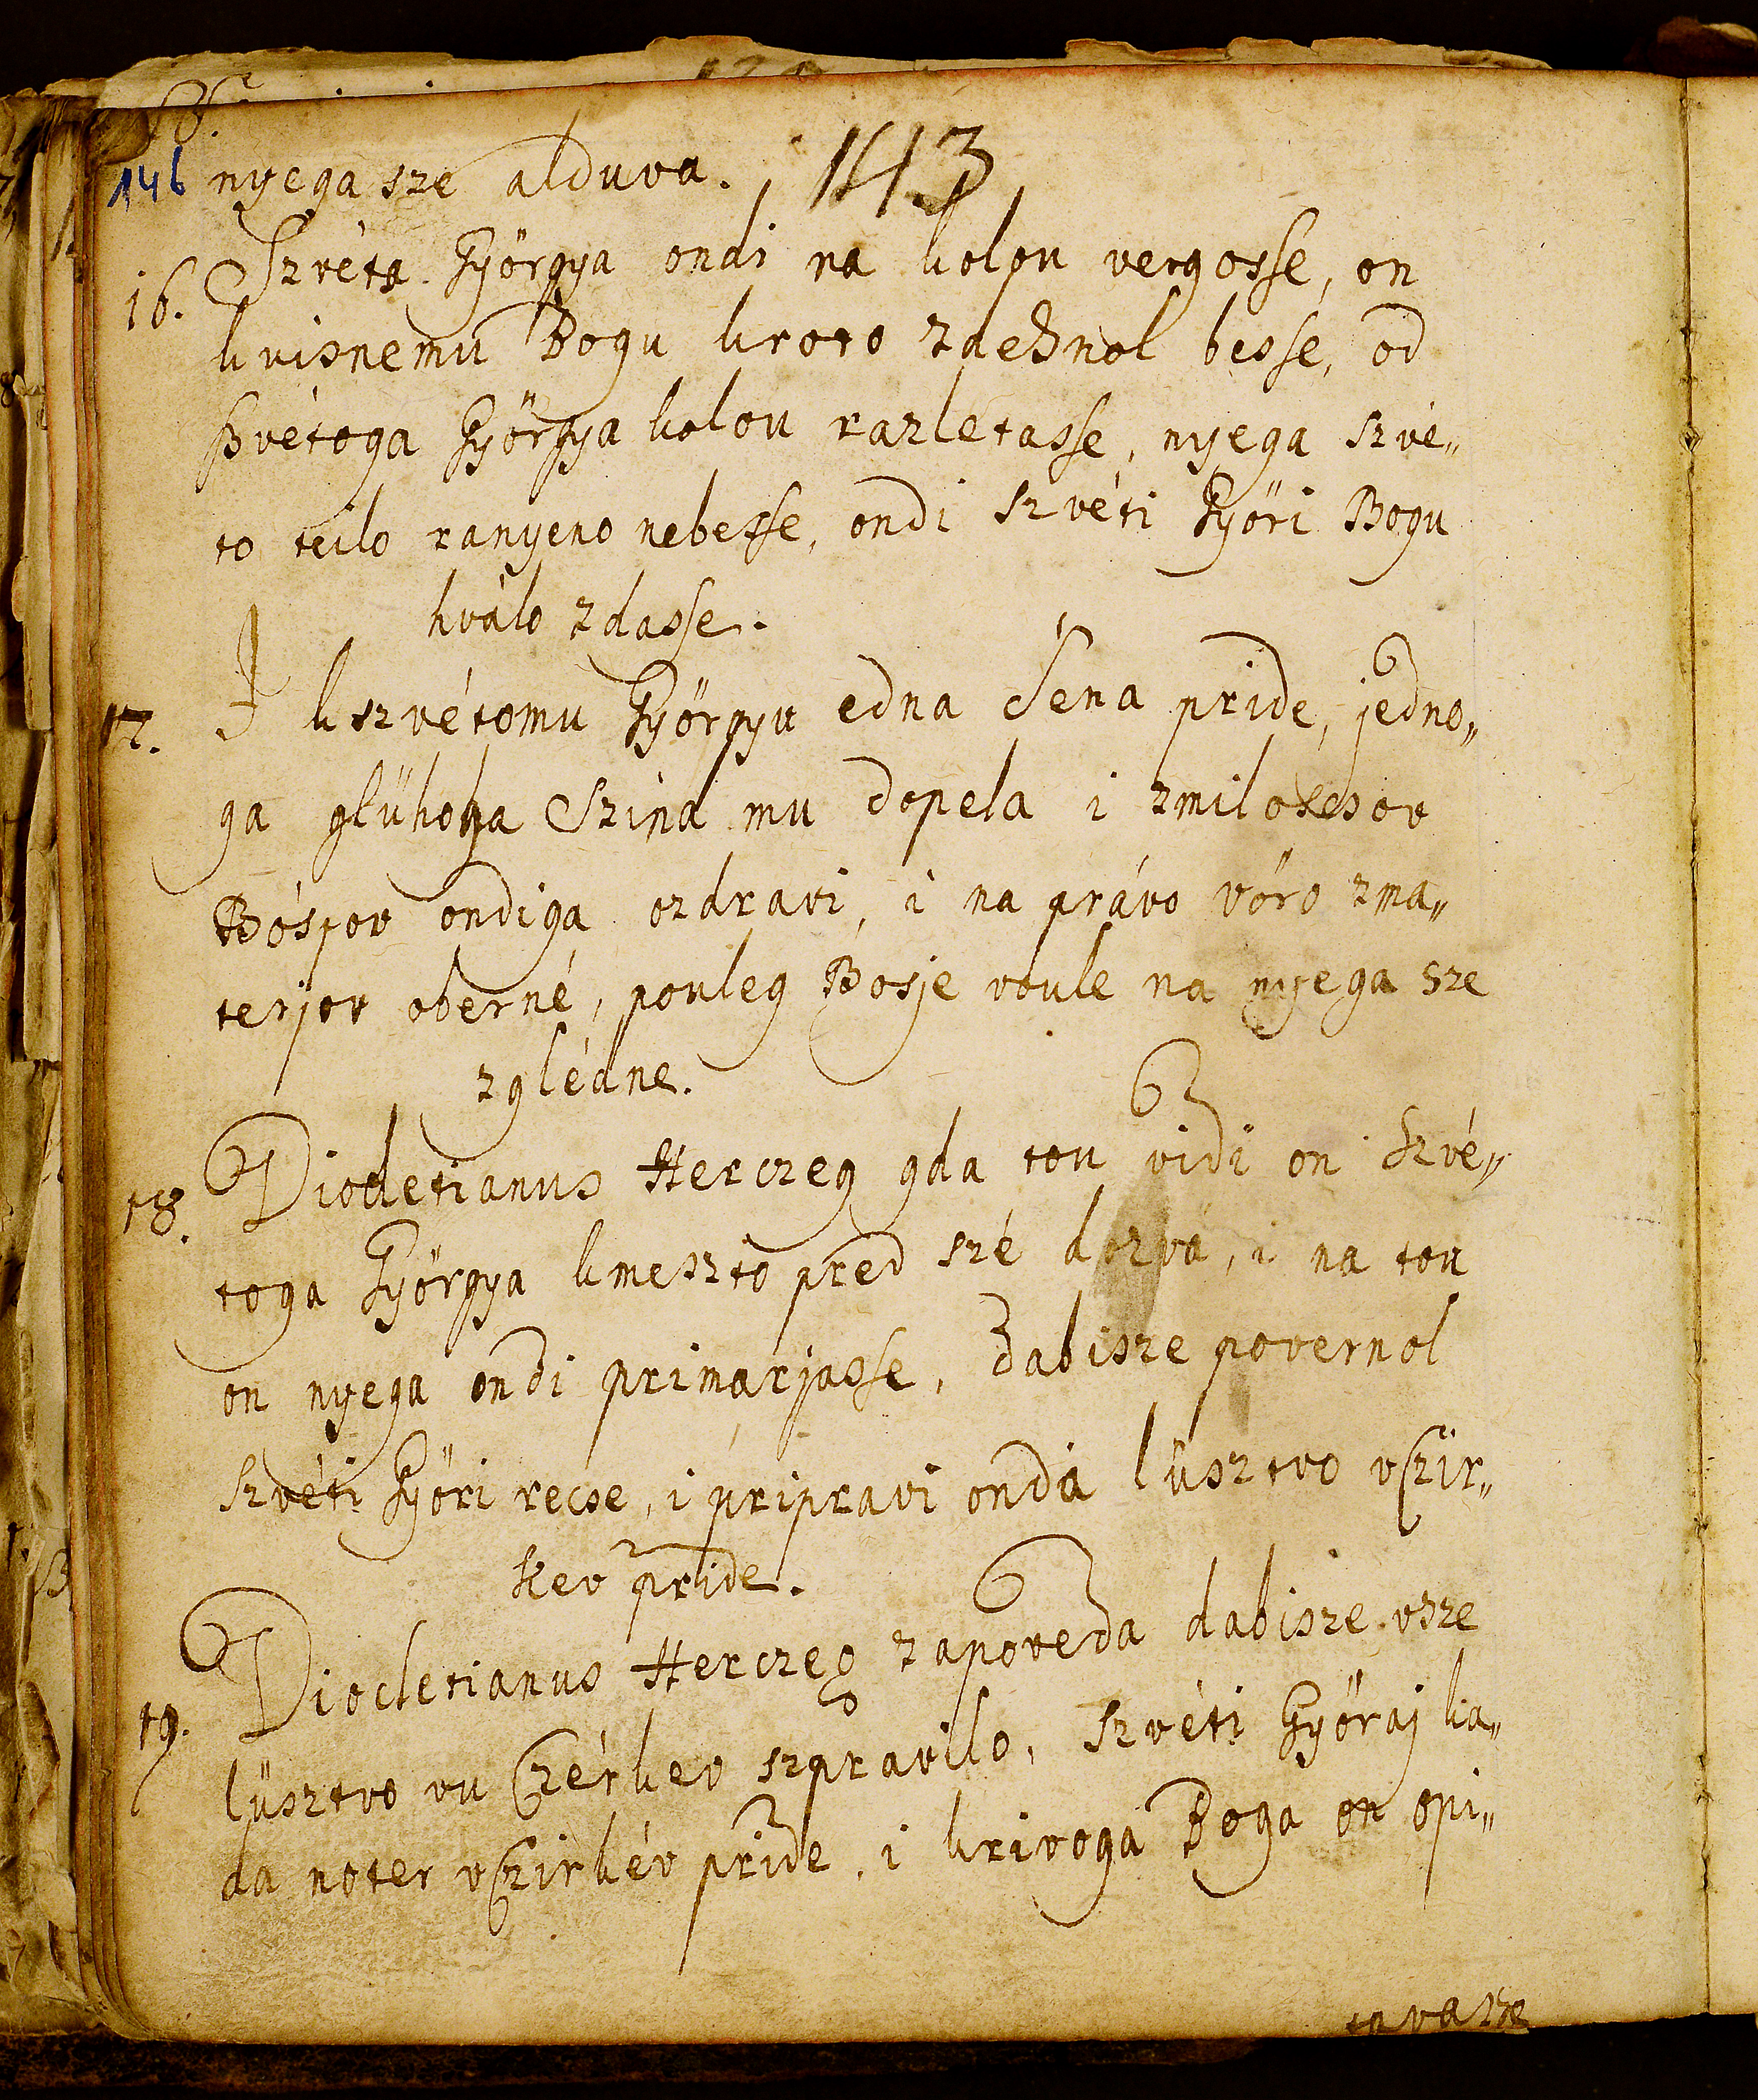 146 nyega sze alduva. 143
16. Szvéta Györgya ondi na kolou vergosse, on
kvisnemu Bogu kroto zdehnol besse, od
szvétoga Györgya kolou razlétasse, nyega szvé„
to teilo ranyeno nebesse, ondi szvéti Györi Bogu
hválo zdasse.
17. I kszvétomu Györgyu edna Sena pride, jedno„
ga glühoga Szina mu dopela i zmiloscsov
Bóspov ondiga ozdravi, i na právo vöro zma„
terjov oberné, pouleg Bosje voule na nyega sze
zglédne.
18. Diocletianus Herczeg gda tou vidi on Szvé„
toga Györgya kmeszto pred szé dozvá, i na tou
on nyega ondi primarjasse, dabisze povernol
szvéti Györi recse, i pripravi onda lüsztvo vczir„
kev pride.
19. Diocletianus Herczeg zapoveda dabisze vsze
lüsztvo vu Czérkev szpravilo, Szvéti Györaj ka„
da noter vczirkév pride, i krivoga Boga on opi„